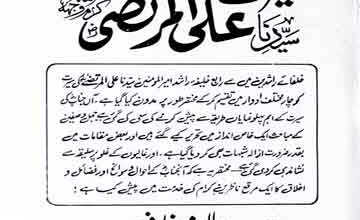 سیدنا علی المرتضیٰ کرم اللہ وجہہ
خلفائے راشدین میں سے رابع خلیفہ راشد امیر المومنین سیدنا علی المرتضیٰ کی سیرت
کو چار مختلف ادوار میں تقسیم کر کے مختصر طور پر مدون کیا گیا ہے۔ آں جناب کی
سیرت کے اہم پہلو نمایاں طریقے سے پیش کرنے کی سعی کی گئی ہے جمل و صفین
کے مباحث ایک خاص انداز میں تحریر کیے گئے ہیں اور بعض مقامات میں
بقدر ضرورت ازالہ شبہات بھی کر دیا گیا ہے۔ اور غالیوں کے غلو پر سلیقہ سے
نشاندہی کر دی گئی ہے۔ مختصر یہ ہے کہ آنجناب کے احوال و سوانح اور فضائل و
اخلاق کا ایک مرقع ناظرین کرام کی خدمت میں پیش کیا ہے؛